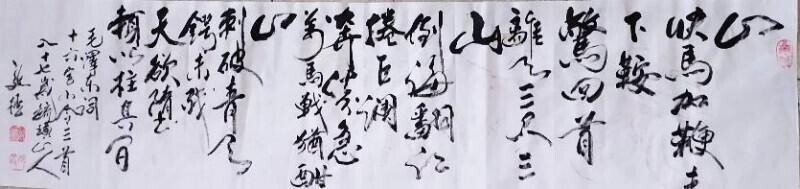 山
快馬加鞭未
下鞍
驚回首
離天三尺三
山
倒海翻江
捲巨澜
奔騰急
萬馬戰猶酣
山
刺破青天
鍔未残
天欲堕
賴以柱其间
毛澤東詞
十六字令三首
八十七歲山人